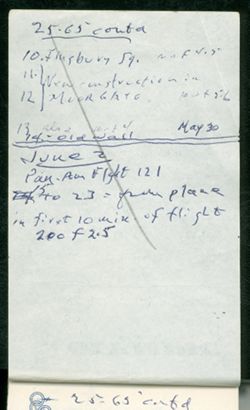 25-65 contd
10. Finsbury Sq.
11 } New construction in
12 } MOORGATE
13
14 - Old wall May 30
June 2
Pan-Am Flght 121
15 to 23 = from plane
in first 10 min. of flight
200 f 2.5
25-65 contd